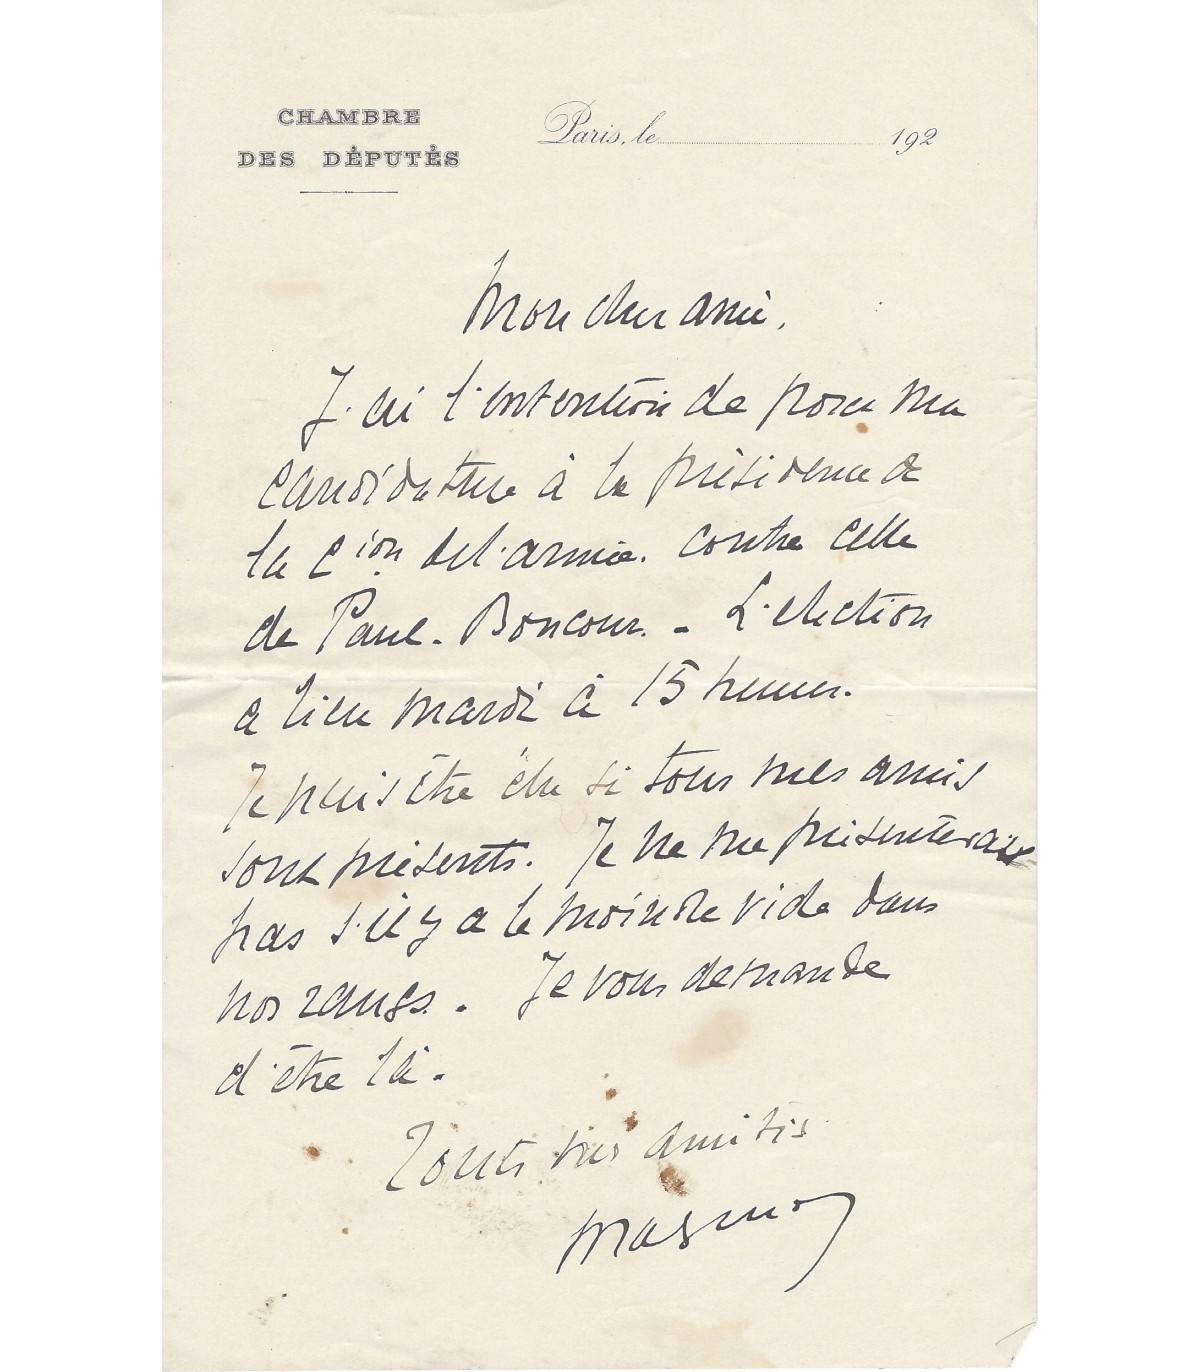 CHAMBRE
DES DÉPUTÉS
Paris, le 192
Mon cher ami,
J'ai l'intention de poser ma
candidature à la présidence de
la Cion de l'armée. contre celle
de Paul-Boncour. - L'élection
a lieu mardi à 15 heures.
Je puis être élu si tous mes amis
sont présents. Je ne me présenterai
pas s'il y a le moindre vide dans
nos rangs. - Je vous demande
d'être là.
Toutes mes amitiés
Maginot